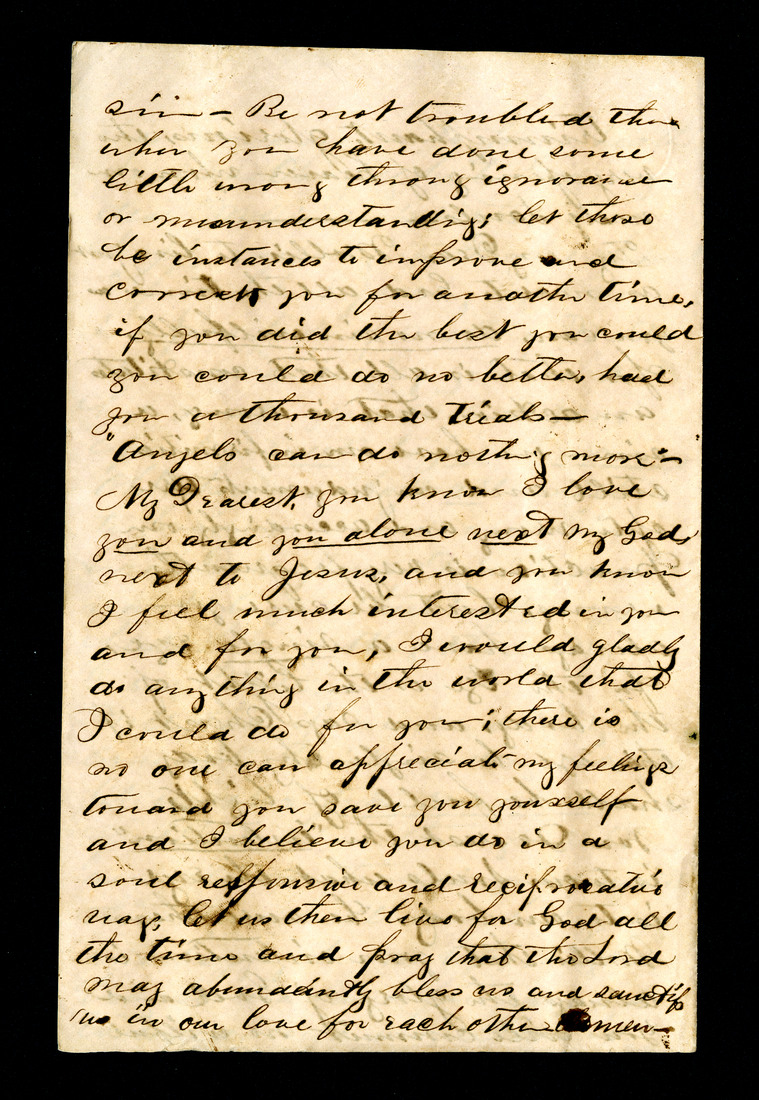 sin — Be not troubled then
when you have done some
little wrong throug ignorance
or misunderstanding; let those
be instances to improve and
correct you for anothe time,
if you did the best you could
you could do no better, had
you a thousand trials —
"Angels can do nothing more" —
My Dearest, you know I love
you and you alone next my God,
next to Jesus, and you know
I feel much interested in you
and for you, I would gladly
do anything in the world that
I could do for you; there is
no one can appreciate my feelings
toward you save you yourself
and I believe you do in a
soul responsive and reciprocative
way, let us then live for God all
the time and pray that the Lord
may abundantly bless us and sanctify
us in our love for each other Amen —